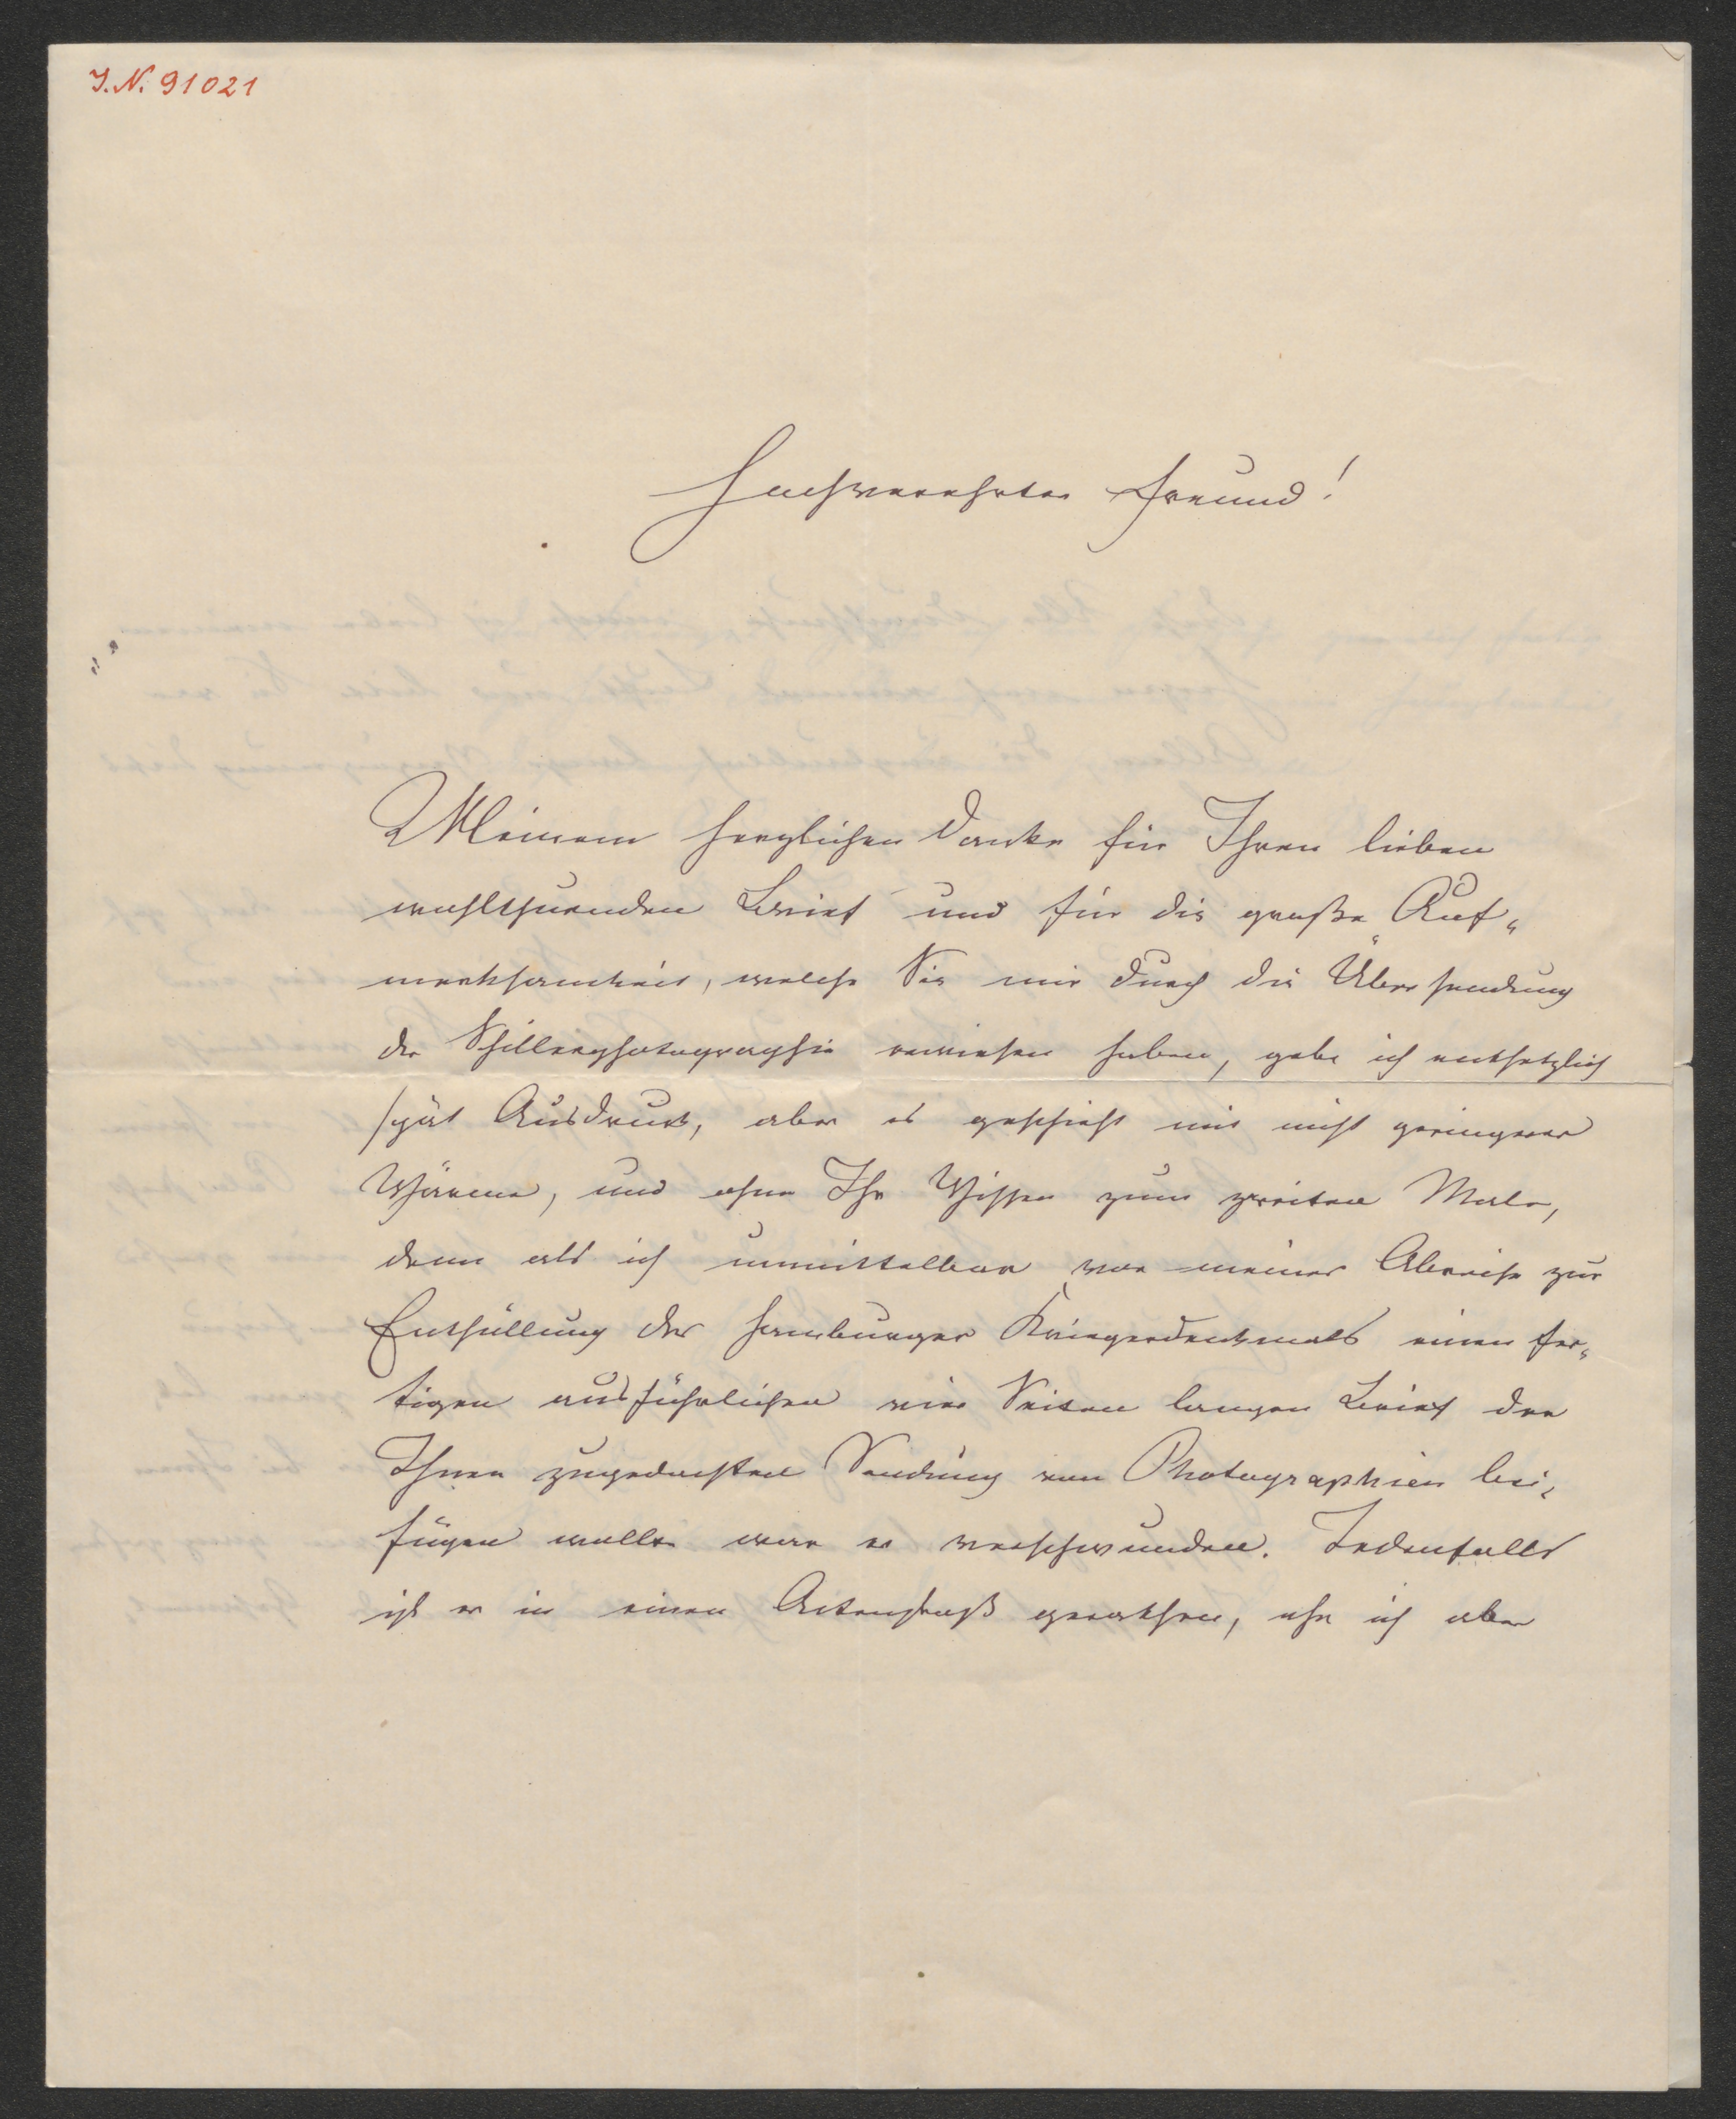 J.N. 91021
Hochverehrter Freund!
Meinem herzlichen Danke für Ihren lieben
wohlthuenden Brief und für die große Auf-
merksamkeit, welche Sie mir durch die Übersendung
der Schillerphotographie erwiesen haben, gebe ich entsetzlich
spät Ausdruck, aber es geschieht mit nicht geringerer
Wärme, und ohne Ihr Wissen zum zweiten Male,
denn als ich unmittelbar vor meiner Abreise zur
Enthüllung des Hamburger Kriegerdenkmals einen fer-
tigen ausführlichen vier Seiten langen Brief der
Ihnen zugedachten Sendung von Photographien bei-
fügen wollte war er verschwunden. Jedenfalls
ist er in einen Actenstoß gerathen, ehe ich aber